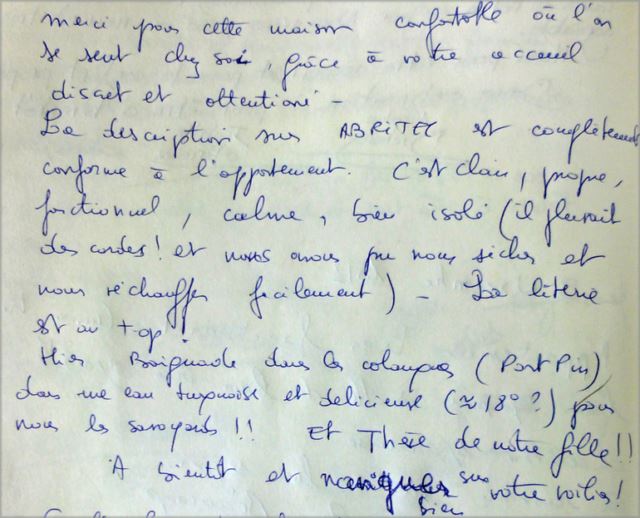 merci pour cette maison confortable où l'on
se sent chez soi, grâce à votre accueil
discret et attentioné -
La description sur ABRITEL est complètement
conforme à l'appartement. C'est clair, propre,
fonctionnel, calme, bien isolé (il pleuvait
des cordes! et nous avons pu nous sécher et
nous réchauffer facilement) - La literie
est au top!
Hier Baignade dans les calanques (Port Pin)
dans une eau turquoise et délicieuse (≈18°?) pour
nous les savoyards!! Et Thèse de notre fille!!
A bientôt et naviguez sur votre voilier!
bien